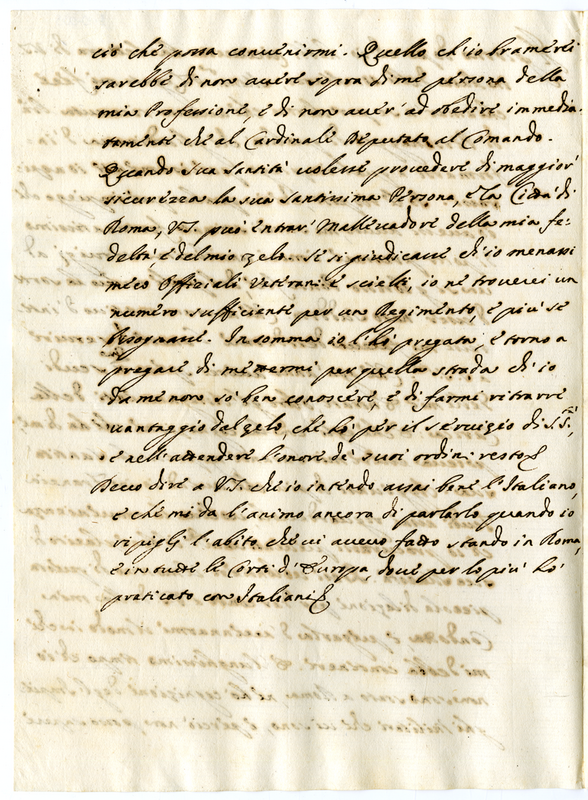 ciò che possa convenirmi. Quello ch'io bramerei
sarebbe di non avere sopra di me persona della
mia Professione, e di non aver' ad obedire immedia-
tamente che al Cardinale Deputato al Comando.
Quando sua Santità volesse provedere di maggior
sicurezza la sua Santissima Persona, e la Città di
Roma, V.S. può entrar' Mallevadore della mia fe-
deltà, e del mio zelo. Se si giudicasse ch'io menassi
meco Officiali Veterani e scielti, io ne troverei un
numero sufficiente per un Regimento, e più se
bisognasse. In somma io l'hò pregata, e torno a
pregare di mettermi per quella strada ch'io
da me non sò ben conoscere, e di farmi ritrarre
vantaggio dal zelo, che hò per il servizio di S.S.tà,
e nell'attendere l'onore de' suoi ordini resto
Devo dire a V.S. che io intendo assai bene l'Italiano,
e che mi dà l'animo ancora di parlarlo quando io
ripigli l'abito che vi avevo fatto stando in Roma,
e in tutte le Corti d'Europa, dove per lo più hò
praticato con Italiani